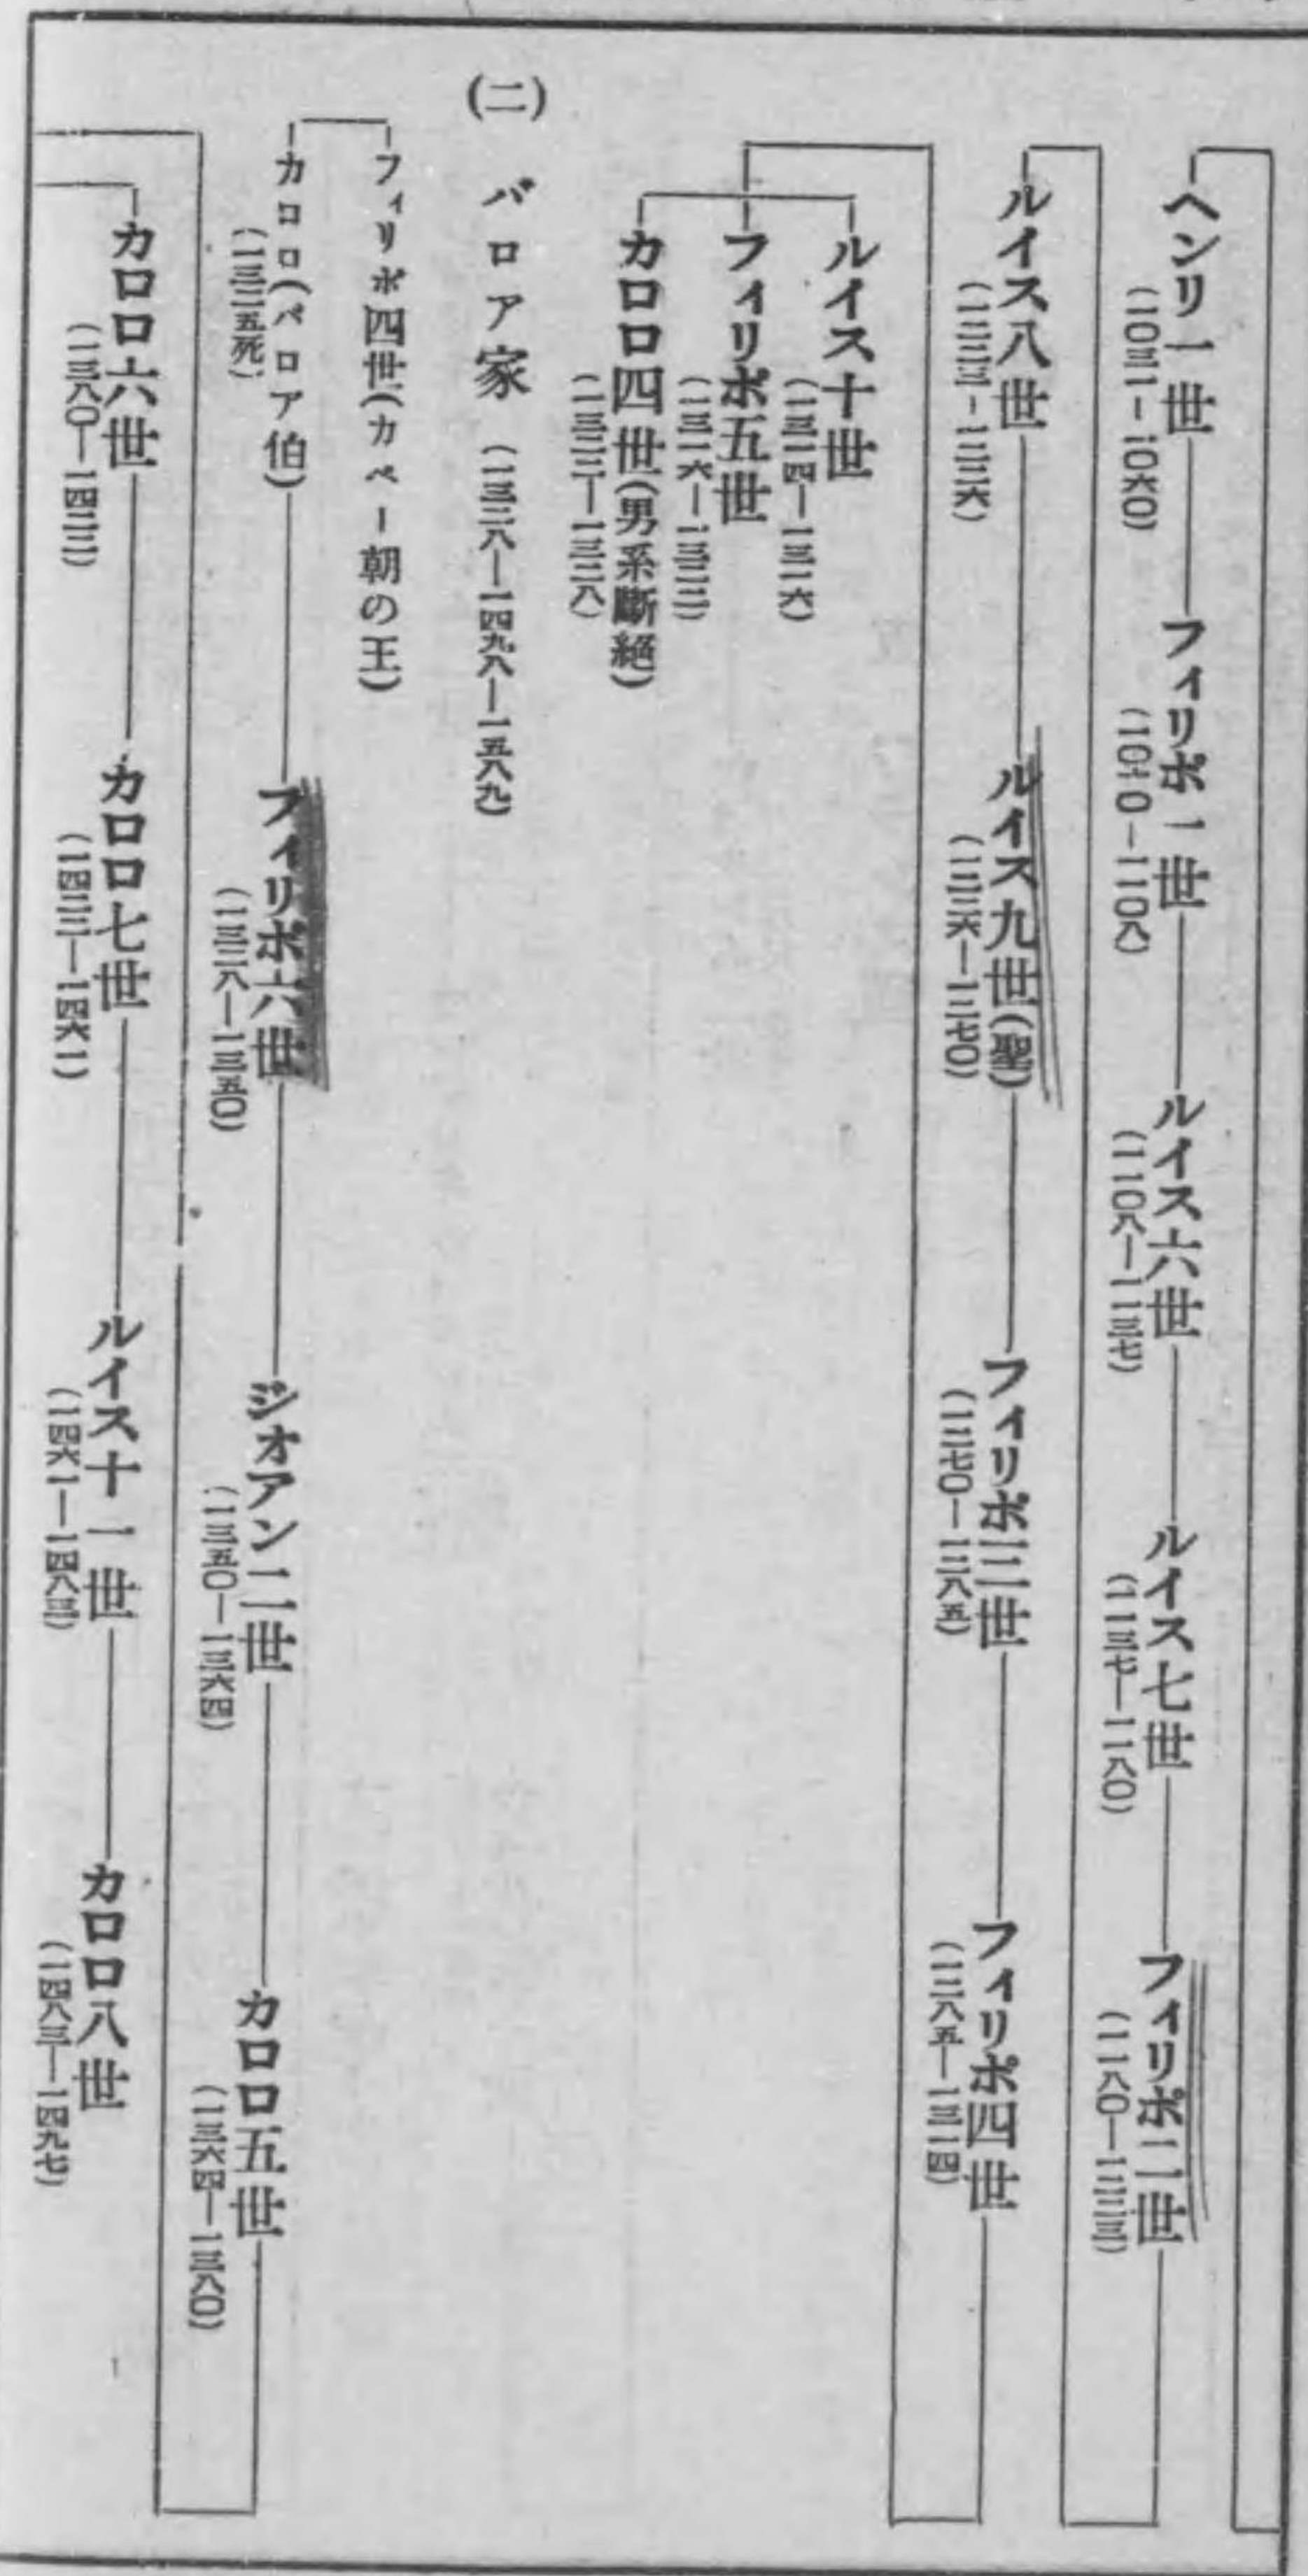 ヘンリ一世
(一〇三一―一〇六〇)
フィリポ一世
(一〇六〇―一一〇八)
ルイス六世
(一一〇八―一一三七)
ルイス七世
(一一三七―一一八〇)
フィリポ二世
(一一八〇―一二二三)
ルイス八世
(一二二三―一二二六)
ルイス九世(聖)
(一二二六―一二七〇)
フィリポ三世
(一二七〇―一二八五)
フィリポ四世
(一二八五―一三一四)
ルイス十世
(一三一四―一三一六)
フィリポ五世
(一三一六―一三二二)
カロロ四世(男系斷絕)
(一三二二―一三二八)
(二) バロア家 (一三二八―一四九八―一五八九)
フィリポ四世(カペー朝の王)
カロロ(バロア伯)
(一三二五死)
フィリポ六世
(一三二八―一三五〇)
ジオアン二世
(一三五〇―一三六四)
カロロ五世
(一三六四―一三八〇)
カロロ六世
(一三八〇―一四二二)
カロロ七世
(一四二二―一四六一)
ルイス十一世
(一四六一―一四八三)
カロロ八世
(一四八三―一四九七)